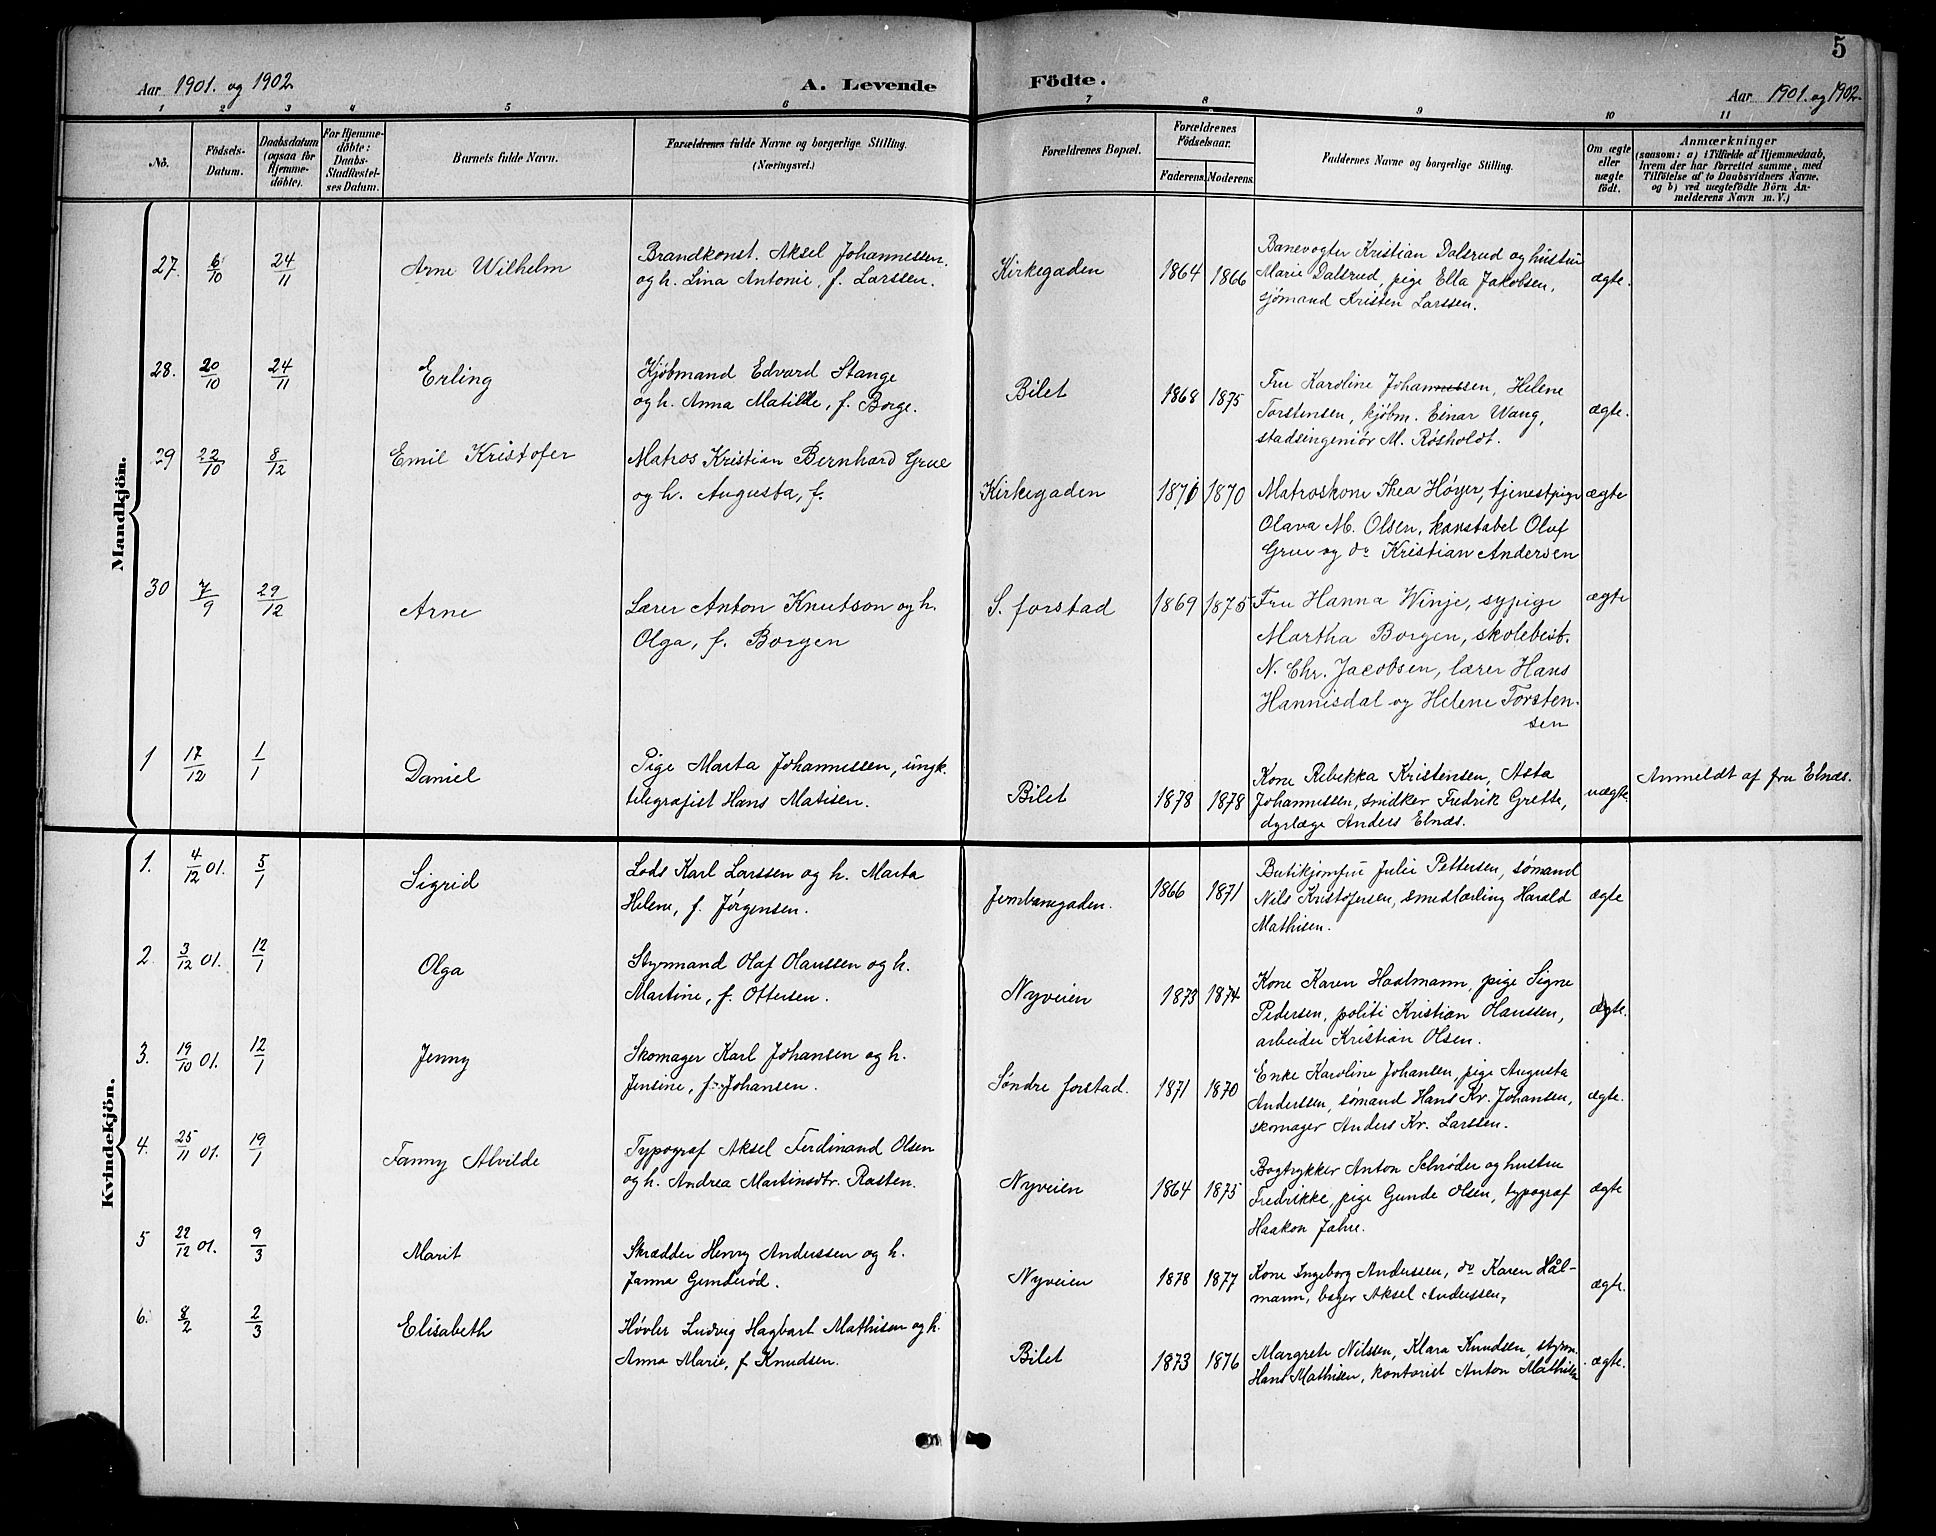 5
Aar 1901. og 1902.
A. Levende Födte.
Aar 1901. og 1902.
1 2 3 4 5 6 7 8 9 10 11
No.
Födsels-Datum.
Daabsdatum (ogsaa för Hjemmedöbte).
For Hjemmedöbte: Daabs-Stadfæstelses Datum.
Barnets fulde Navn.
Forældrenes fulde Navne og borgerlige Stilling.
(Næringsvei.)
Forældrenes Bopæl.
Forældrenes Födselsaar.
Faderens. Moderens.
Faddernes Navne og borgerlige Stilling.
Om ægte eller uægte födt.
Anmærkninger
(saasom: a) i Tilfælde af Hjemmedaab,
hvem der har forrettet samme, med
Tilföielse af to Daabsvidners Navne,
og b) ved uægtefödte Börn An-
melderens Navn m. V.)
Mandkjön.
27. 6/10 24/11 Arne Wilhelm
Brandkonst. Aksel Johannessen.
og h. Lina Antonie, f. Larssen.
Kirkegaden 1864 1866
Banevogter Kristian Dalsrud og hustru
Marie Dalsrud, pige Ella Jakobsen,
sjømand Kristen Larssen.
ægte.
28. 20/10 24/11 Erling
Kjøbmand Edvard Stange
og h. Anna Matilde, f. Borge.
Bilet 1868 1875
Fru Karoline Johannessen, Helene
Torstensen, kjøbm. Einar Wang,
stadsingeniør M. Røsholdt.
ægte.
29 22/10 8/12 Emil Kristofer
Matros Kristian Bernhard Grue
og h. Augusta, f.
Kirkegaden 1876 1870
Matroskone Thea Høyer, tjenestpige
Olava M. Olsen, konstabel Oluf
Grue og do Kristian Andersen
ægte
30 7/9 29/12 Arne
Lærer Anton Knutson og h.
Olga, f. Borgen
S. forstad 1869 1875
Fru Hanna Winje, sypige
Martha Borgen, skolebest.
N. Chr. Jacobsen, lærer Hans
Hannisdal og Helene Torsten-
sen
ægte
1 17/12 1/1 Daniel
Pige Marta Johannessen, ungk.
telegrafist Hans Matisen.
Bilet 1878 1878
Kone Rebekka Kristensen, Asta
Johannessen, smidker Fredrik Grette,
dyrlæge Anders Elnæs.
uægte.
Anmeldt af fru Elnæs.
Kvindekjön.
1. 4/12 01. 5/1 Sigrid
Lods Karl Larssen og h. Marta
Helene, f. Jørgensen.
Jernbanegaden. 1866 1871
Butikjomfru Julie Pettersen, sømand
Nils Kristofersen, smedlærling Harald
Mathisen.
ægte
2. 3/12 01. 12/1 Olga
Styrmand Olaf Hanssen og h.
Martine, f. Ottersen.
Nyveien 1873 1874
Kone Karen Haalmann, pige Signe
Pedersen, politi Kristian Hanssen,
arbeider Kristian Olsen.
ægte.
3. 19/10 01. 12/1 Jenny
Skomager Karl Johansen og h.
Jensine, f. Johansen.
Søndre forstad. 1871 1870
Enke Karoline Johansen, pige Augusta
Anderssen, sømand Hans Kr. Johansen,
skomager Anders Kr. Larssen.
ægte.
4. 25/11 01. 19/1 Fanny Alvilde
Typograf Aksel Ferdinand Olsen
og h. Andrea Martinsdtr. Rasten.
Nyveien 1864 1875
Bogtrykker Anton Schrøder og hustru
Fredrikke, pige Gunde Olsen, typograf
Haakon Jahre.
ægte
5 22/12 01. 9/3 Marit
Skrædder Henry Anderssen og h.
Janna Gunderød.
Nyveien 1878 1877
Kone Ingeborg Anderssen, do Karen Hål-
mann, bager Aksel Anderssen,
ægte.
6. 8/2 2/3 Elisabeth
Høvler Ludvig Hagbart Mathisen og h.
Anna Marie, f Knudsen.
Bilet 1873 1876
Margrete Nilssen, Klara Knudsen, styrm.
Hans Mathisen, kontorist Anton Mathisen
ægte.